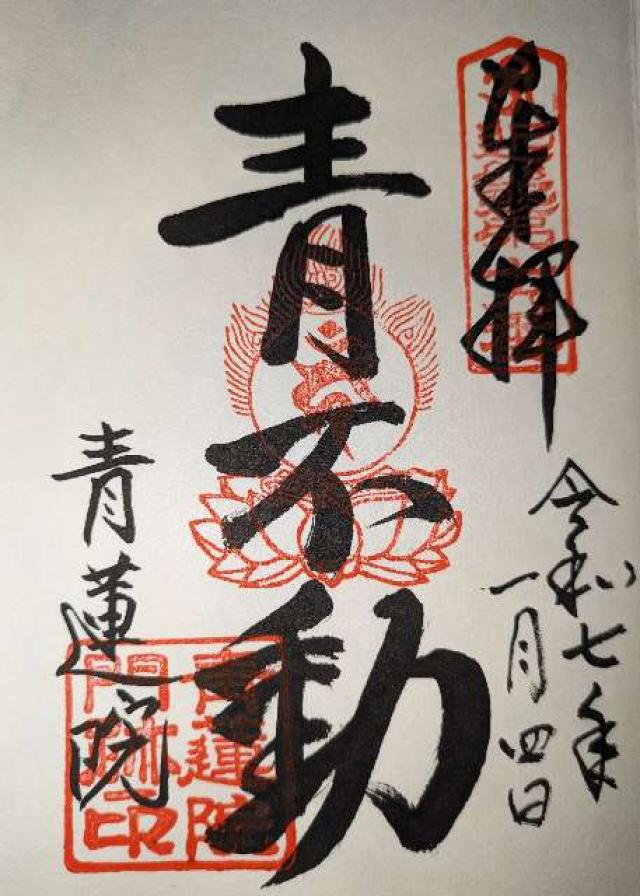 奉拝
令和七年
一月四日
青不動
青蓮院
青蓮院
門跡印